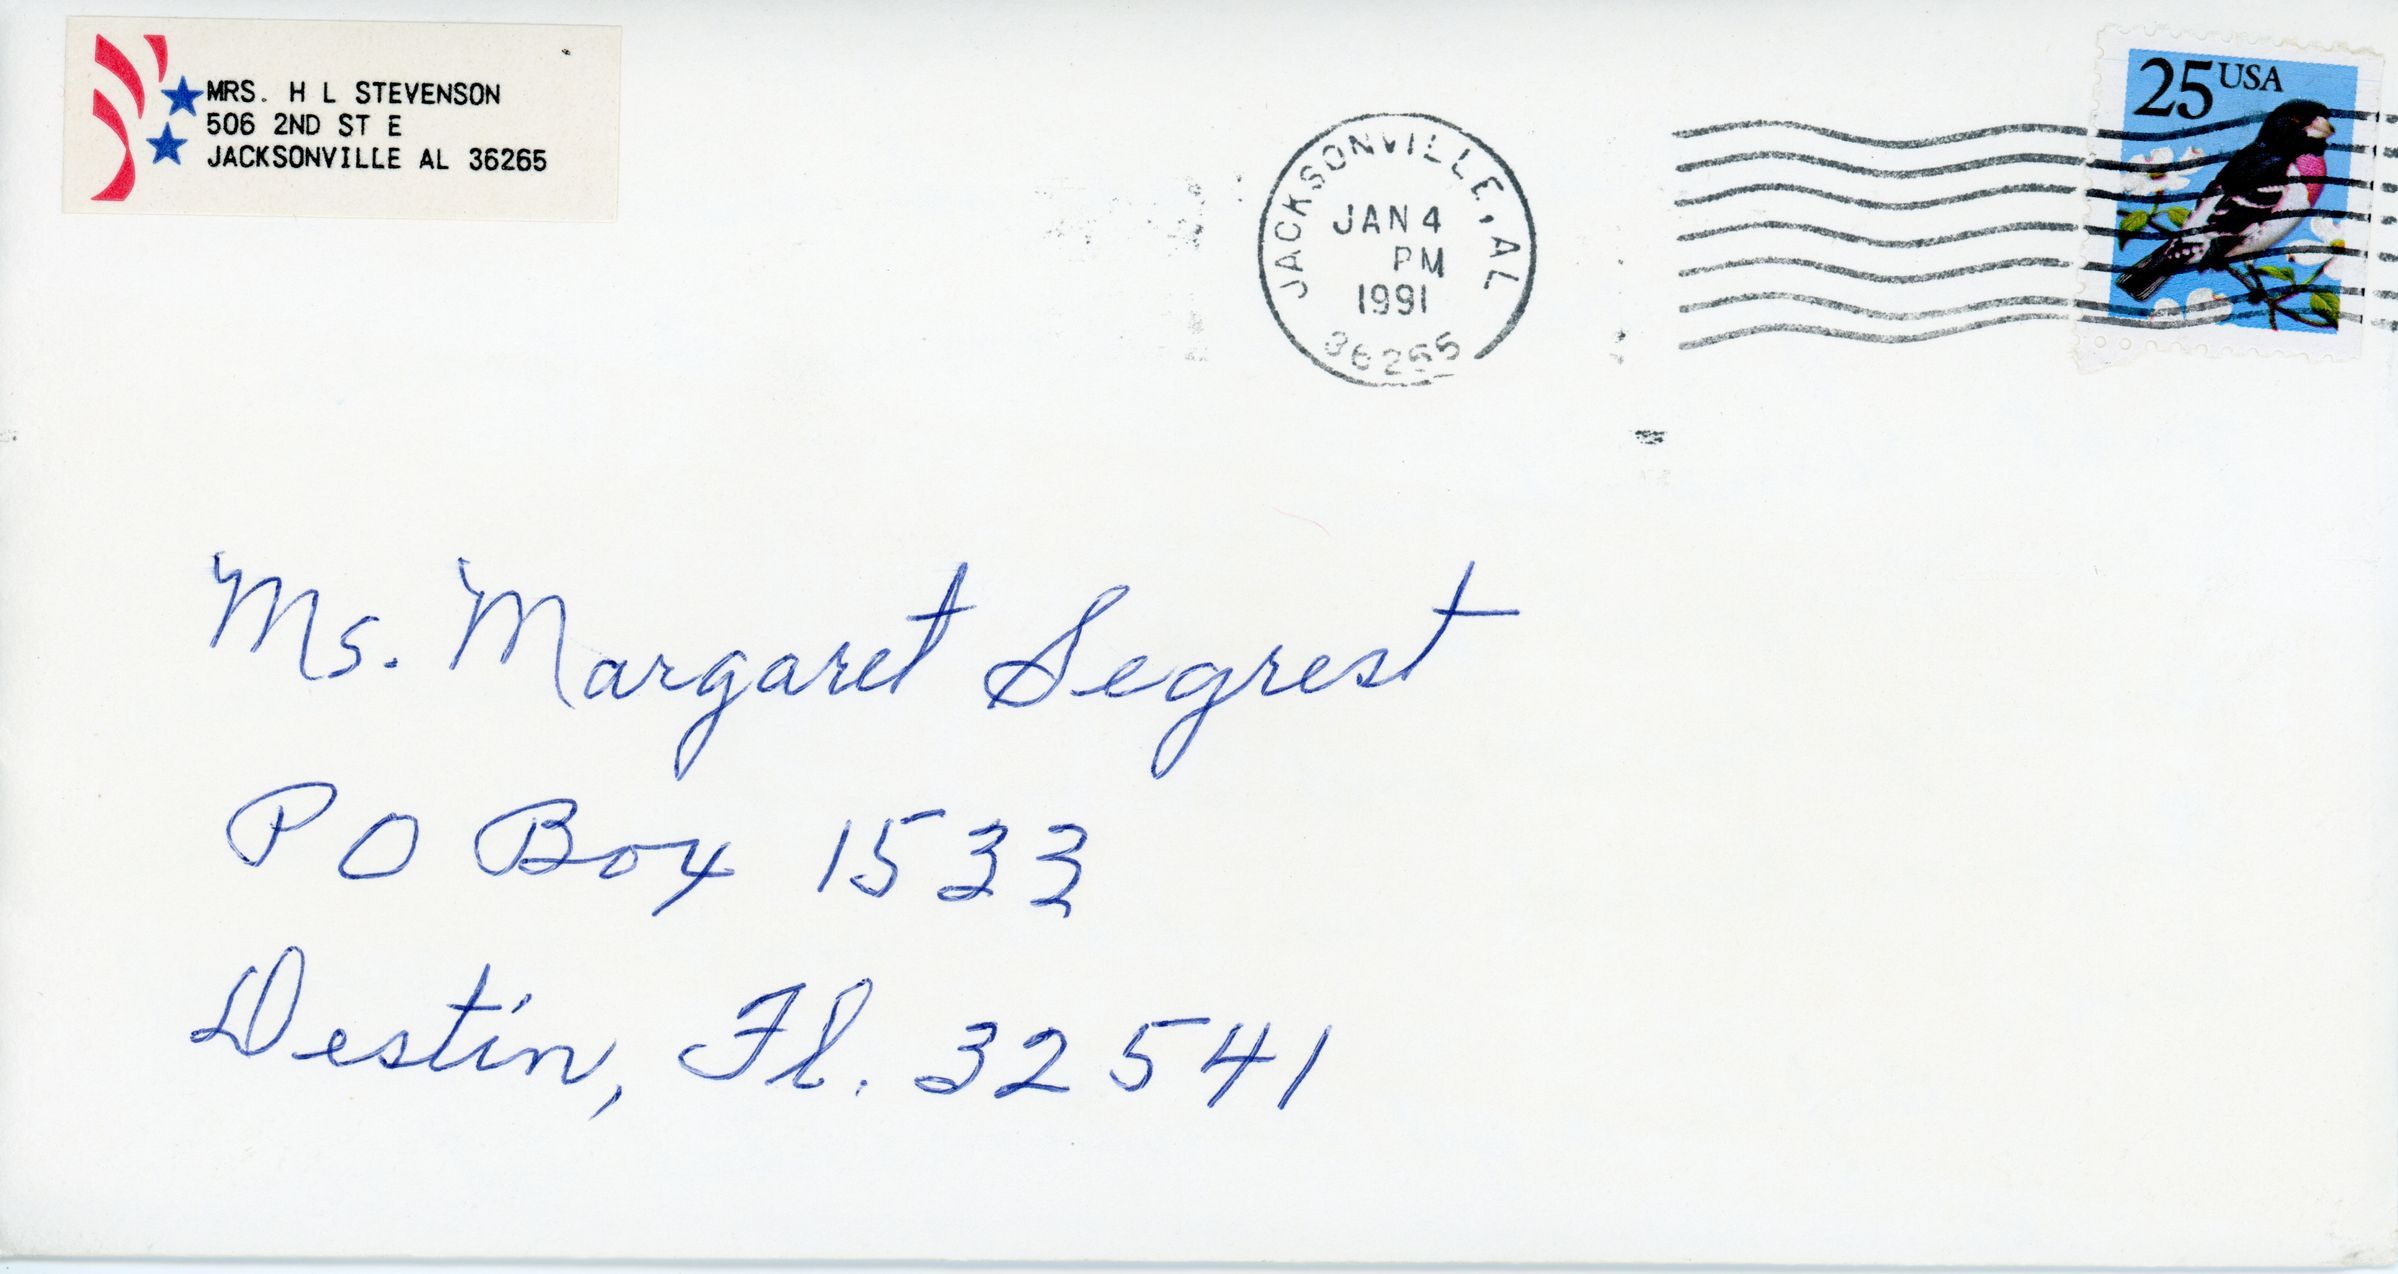 MRS. H L STEVENSON
506 2ND ST E
JACKSONVILLE AL 36265
JACKSONVILLE, AL
JAN 4
PM
1991
36265
25 USA
Ms. Margaret Segrest
P O Box 1533
Destin, Fl. 32541